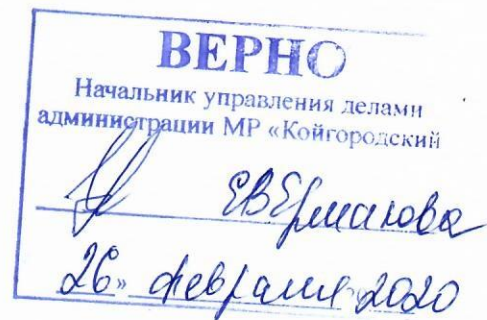 ВЕРНО
Начальник управления делами
администрации МР «Койгородский
ЕВЕрмакова
26» февраля 2020